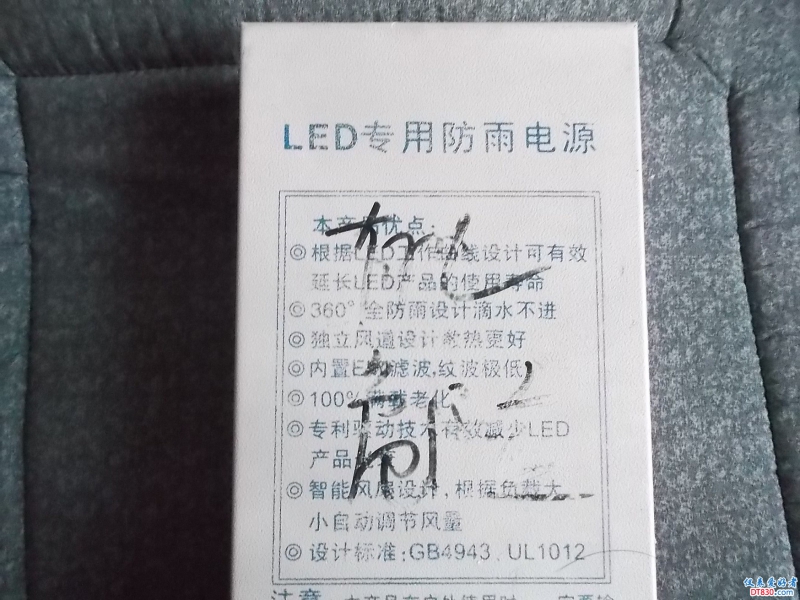 LED专用防雨电源
本产品优点:
◎根据LED工作曲线设计可有效
延长LED产品的使用寿命
◎360°全防雨设计滴水不进
◎独立风道设计散热更好
◎内置EMI滤波,纹波极低
◎100%满载老化
◎专利驱动技术有效减少LED
产品
◎智能风扇设计,根据负载大
小自动调节风量
◎设计标准:GB4943、UL1012
注意 本产品在户外使用时
仪表爱好者
DT830.com